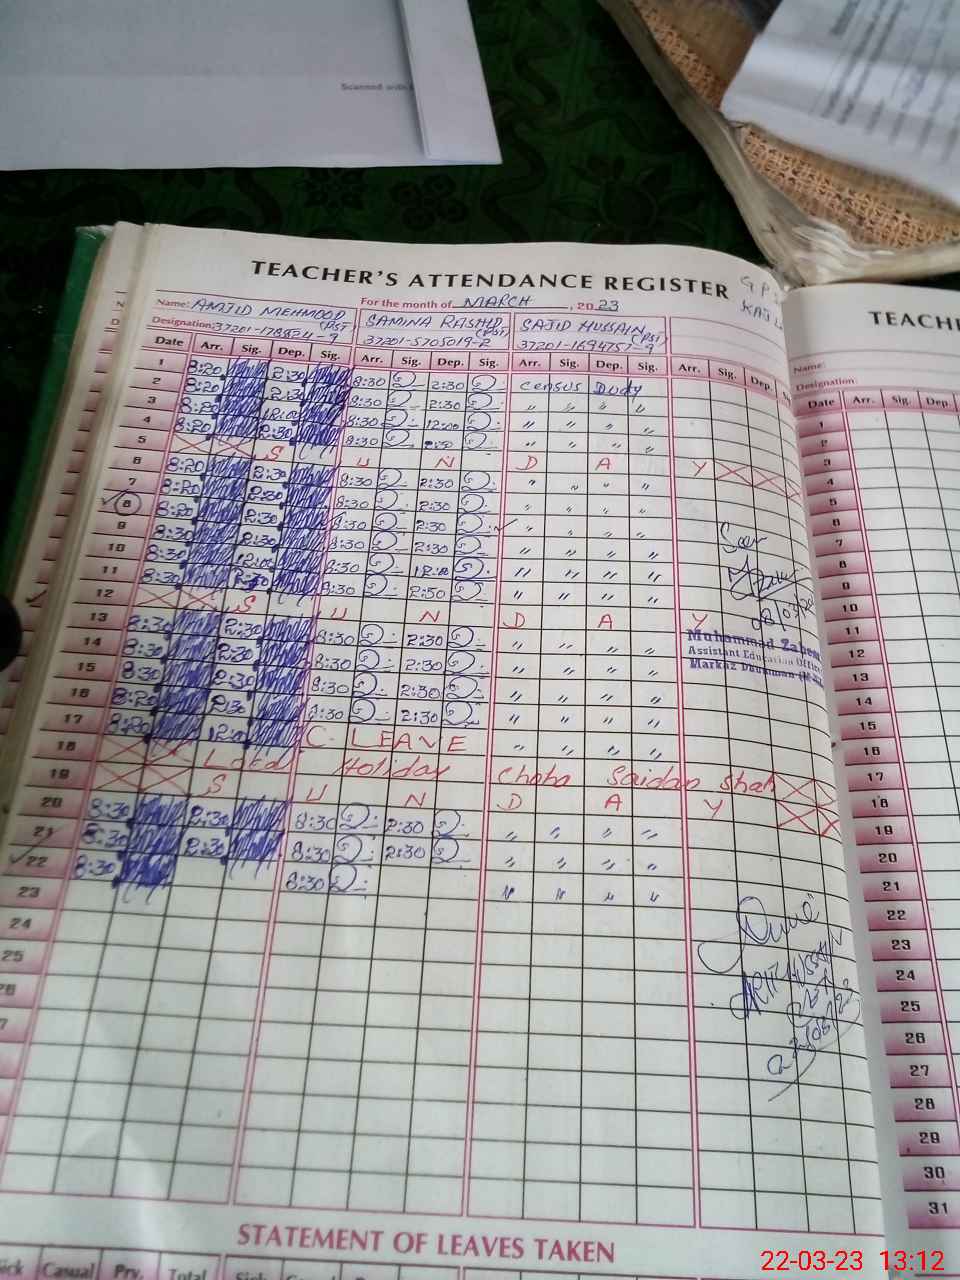 Scanned with
TEACHER'S ATTENDANCE REGISTER
TEACH
Name: AMJID MEHMOOD (PST) For the month of MARCH , 2023
Designation: SAMINA RASHID (PST) SAJID HUSSAIN (PST)
37201-5705019-2 37201-1694757-9
Name:
Designation:
Date Arr. Sig. Dep. Sig. Arr. Sig. Dep. Sig. Arr. Sig. Dep. Sig. Arr. Sig. Dep.
Date Arr. Sig. Dep.
1 8:20 2:30 8:30 2:30 Census Duty
2 8:20 2:30 8:30 2:30 " " " "
3 8:20 12:00 8:30 12:00 " " " "
4 8:20 2:30 8:30 " " " "
5 S U N D A Y
6 8:20 2:30 8:30 2:30 " " " "
7 8:20 2:30 8:30 2:30 " " " "
8 8:20 2:30 8:30 2:30 " " " "
9 8:30 2:30 8:30 2:30 " " " "
10 8:30 12:00 8:30 12:00 " " " "
11 8:30 2:30 8:30 2:30 " " " "
12 S U N D A Y
13 8:30 2:30 8:30 2:30 " " " "
14 8:30 2:30 8:30 2:30 " " " "
15 8:30 2:30 8:30 2:30 " " " "
16 8:20 2:30 8:30 2:30 " " " "
17 8:20 12:00 C. LEAVE " " " "
18 Local Holiday Choha Saidan Shah
19 S U N D A Y
20 8:30 2:30 8:30 2:30 " " " "
21 8:30 2:30 8:30 2:30 " " " "
22 8:30 8:30 " " " "
23
24
25
Seen
Muhammad
Assistant Education Officer
Markaz
1
2
3
4
5
6
7
8
9
10
11
12
13
14
15
16
17
18
19
20
21
22
23
24
25
26
27
28
29
30
31
STATEMENT OF LEAVES TAKEN
Sick Casual Prv. Total
22-03-23 13:12